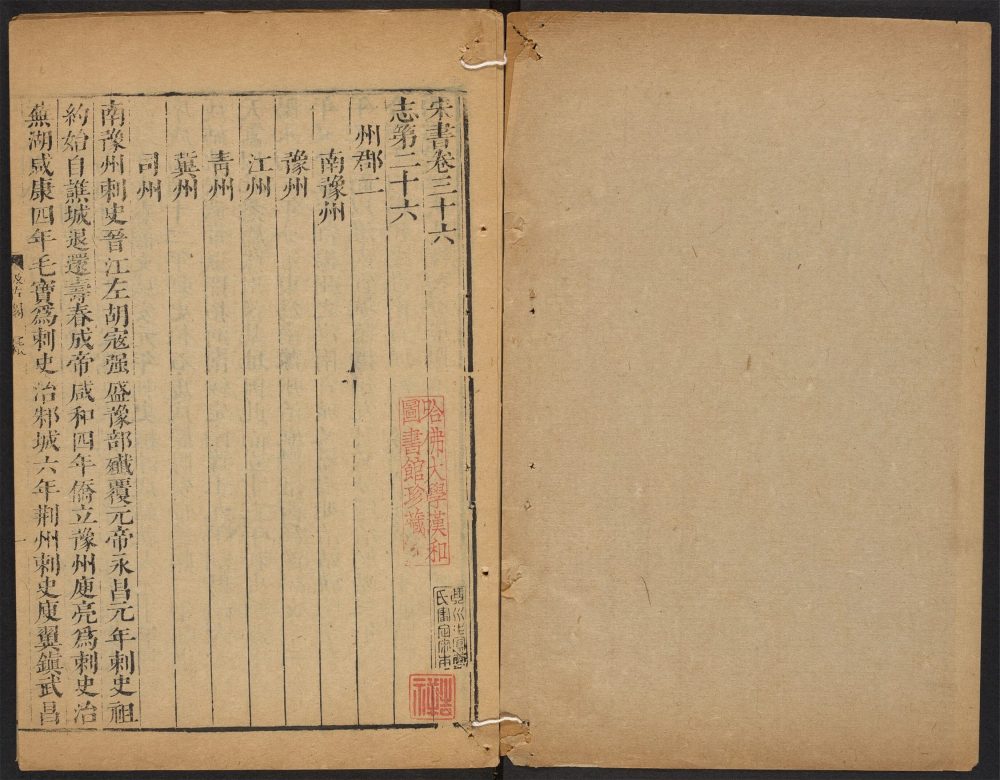 宋書卷三十六
志第二十六
州郡二
南豫州
豫州
江州
青州
冀州
司州
南豫州刺史晉江左胡寇强盛豫部殲覆元帝永昌元年刺史祖
約始自譙城退還壽春成帝咸和四年僑立豫州庾亮爲刺史治
蕪湖咸康四年毛寶爲刺史治邾城六年荆州刺史庾翼鎮武昌
哈佛大學漢和
圖書館珍藏